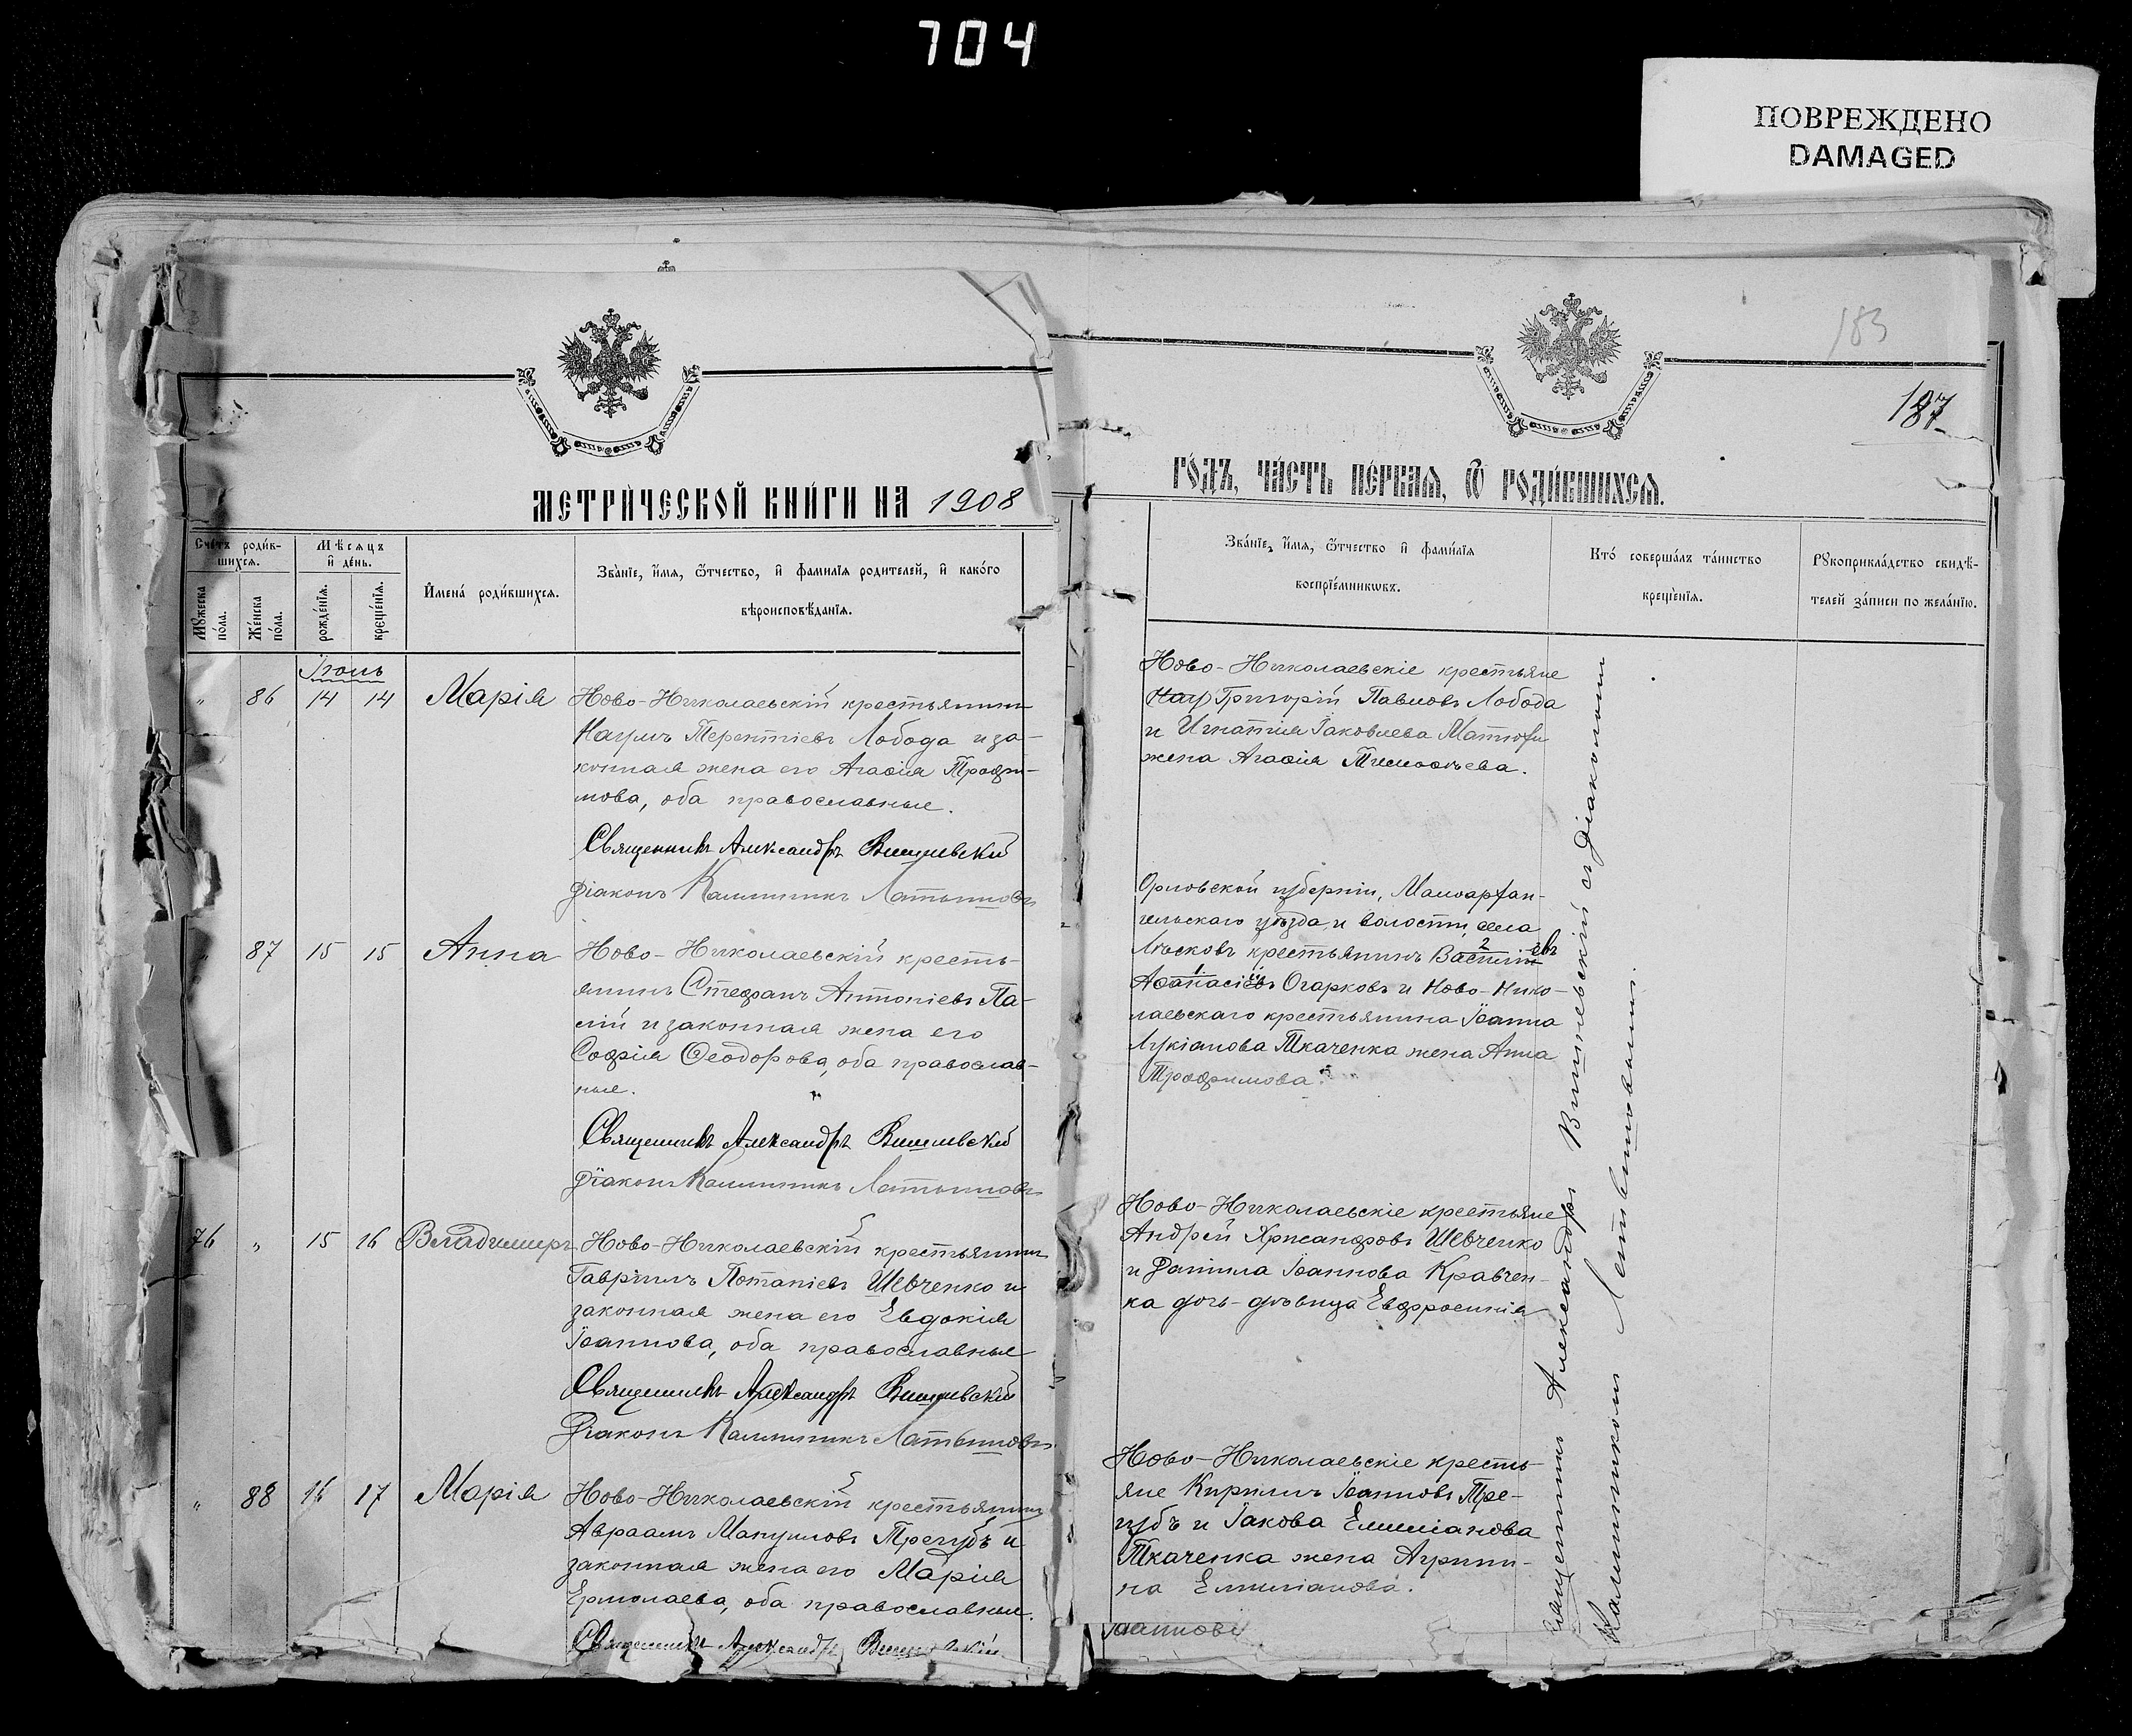 704
ПОВРЕЖДЕНО
DAMAGED
183
187
МЕТРИ́ЧЕСКОЙ КНИ́ГИ НА 1908
ГО́ДЪ, ЧА́СТЬ ПЕ́РВАЯ, Ѿ РОДИ́ВШИХСЯ.
Сче́тъ роди́в-
шихся.
Мѣ́сяцъ
и҆ де́нь.
Мꙋ́жеска
по́ла.
Же́нска
по́ла.
рожде́нїѧ.
креще́нїѧ.
И҆мена́ роди́вшихся.
Зва́нїе, и҆́мѧ, ѻ҆́тчество, и҆ фами́лїѧ роди́телей, и҆ како́гѡ
вѣроисповѣ́данїѧ.
Зва́нїе, и҆́мѧ, ѻ҆́тчество и҆ фами́лїѧ
воспрїе́мникѡвъ.
Кто̀ соверша́лъ та́инство
креще́нїѧ.
Рꙋкоприкла́дство свидѣ́-
телей за́писи по жела́нїю.
Іюнь
" 86 14 14 Марія
Ново-Николаевскій крестьянинъ
Наумъ Терентіевъ Лобода и за-
конная жена его Агаѳія Трофи-
мова, оба православные.
Священникъ Александръ Вишневскій
Діаконъ Каллиникъ
Ново-Николаевскіе крестьяне
Нау Григорій Павловъ Лобода
и Игнатія Іаковлева
жена Агаѳія Тимоѳеева.
" 87 15 15 Анна
Ново-Николаевскій кресть-
янинъ Стефанъ Антоніевъ Па-
лій и законная жена его
Софія Ѳеодорова, оба православ-
ные.
Священникъ Александръ Вишневскій
Діаконъ Каллиникъ
Орловской губерніи, Малоархан-
гельскаго уѣзда и волости, села
крестьянинъ 2 Василіевъ
1 Аѳанасій Огарковъ и Ново-Нико-
лаевскаго крестьянина Іоанна
Лукіанова Ткаченка жена Анна
Трофимова.
76 " 15 16 Владимиръ
Ново-Николаевскій крестьянинъ
Гавріилъ Потапіевъ Шевченко и
законная жена его Евдокія
Іоаннова, оба православные
Священникъ Александръ Вишневскій
Діаконъ Каллиникъ
Ново-Николаевскіе крестьяне
Андрей Хрисанфовъ Шевченко
и Даніила Іоаннова Кравчен-
ка дочь-дѣвица Евфросинія
" 88 16 17 Марія
Ново-Николаевскій крестьянинъ
Авраамъ Мануиловъ Трегубъ и
законная жена его Марія
Ермолаева, оба православные.
Священникъ Александръ Вишневскій
Ново-Николаевскіе кресть-
яне Кириллъ Іоанновъ Тре-
губъ и Іакова Емиліанова
Ткаченка жена Агриппи-
на Емиліанова.
Іоанновъ
Священникъ Александръ Вишневскій съ діакономъ
Каллиникомъ